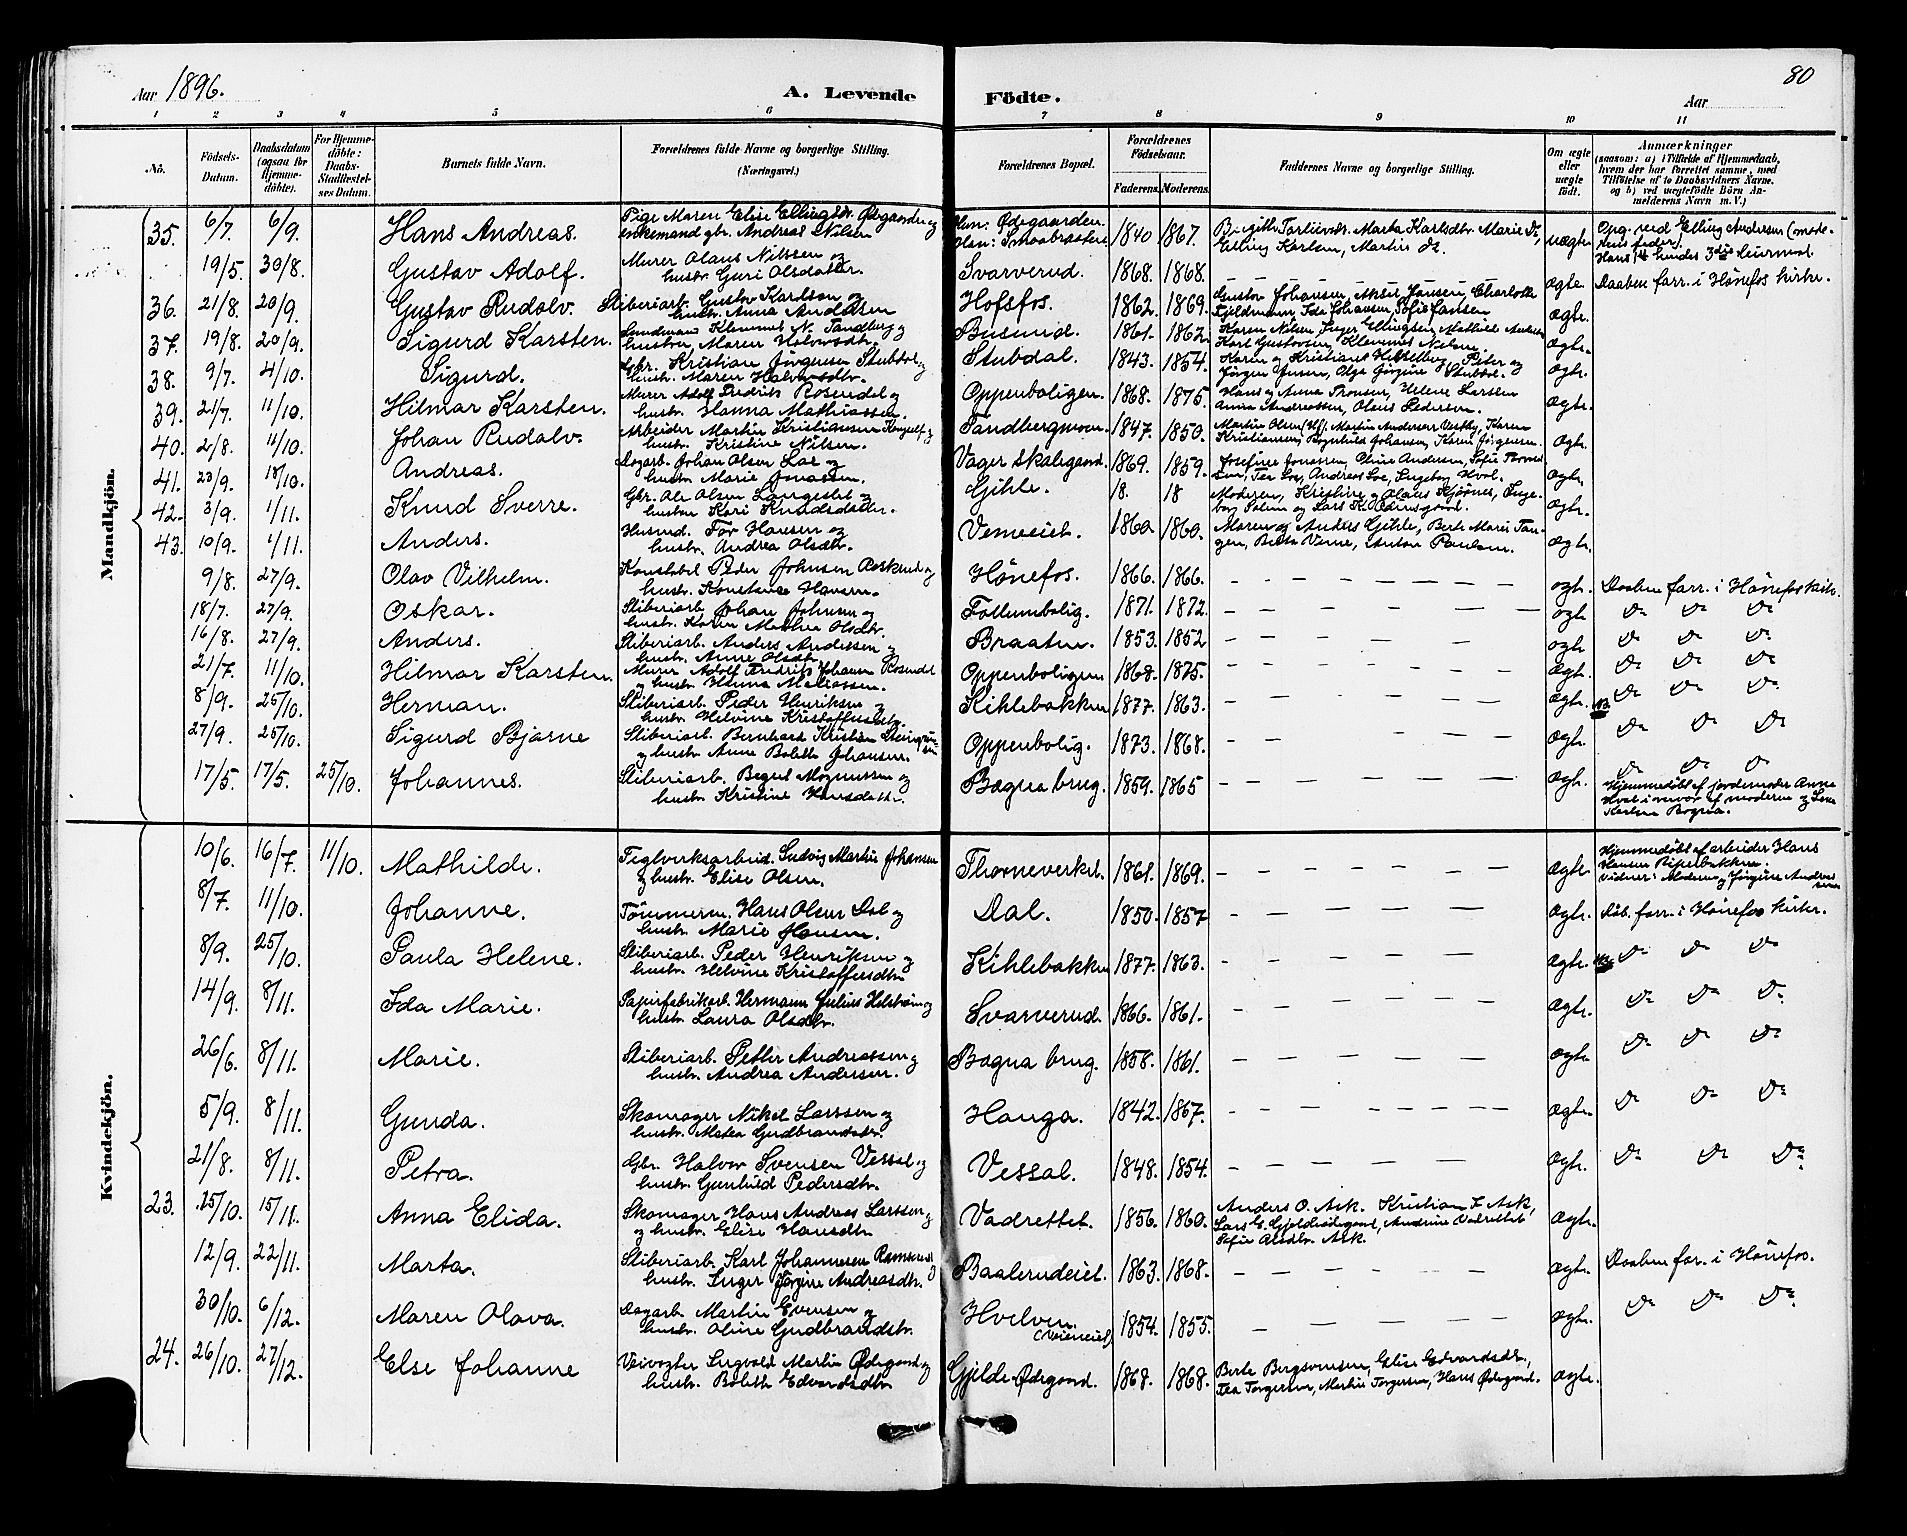 Aar 1896.
A. Levende
Födte.
Aar
80
1 2 3 4 5 6 7 8 9 10 11
No.
Födsels-Datum.
Daabsdatum (ogsaa for Hjemme-döbte).
For Hjemme-döbte: Daabs-Stadfæstel-ses Datum.
Barnets fulde Navn.
Forældrenes fulde Navne og borgerlige Stilling. (Næringsvei.)
Forældrenes Bopæl.
Forældrenes Födselsaar.
Faderens. Moderens.
Faddernes Navne og borgerlige Stilling.
Om ægte eller uægte födt.
Anmærkninger
(saasom: a) i Tilfælde af Hjemmedaab, hvem der har forrettet samme, med Tilföielse af to Daabsvidners Navne, og b) ved uægtefödte Börn An-melderens Navn m. V.)
Mandkjön.
35. 6/7. 6/9. Hans Andreas. Pige Maren Elise Ellingsdr. Ødegaarden og enkemand gbr. Andreas Nilsen Hun: Ødegaarden 1840 1867. Elling Karlsen, uægte
19/5. 30/8. Gustav Adolf. Murer Olaus Nilssen og hustr. Guri Olsdatter. Svarverud. 1868. 1868. — ægte. Daaben forr. i Hönefos kirke.
36. 21/8. 20/9. Gustav Rudolv. Sliberiarb. Gustav Karlsen og hustr. Anna Hofsfos. 1862. 1869. Gustav Johansen, Ida Johansen ægte.
37. 19/8. 20/9. Sigurd Karsten. Klemmet N. Tandberg og hustru Maren Halvorsdtr. Busund. 1861. 1862. Karen Nilsen, Karl Gustavsen, Klemmet Nielsen. ægte.
38. 9/7. 4/10. Sigurd. Gbr. Kristian Jörgensen Stubdal og hustr. Maren Halvorsdtr. Stubdal. 1843. 1854. Jörgen Jensen, Olga Jörgine Stubdal. ægte.
39. 21/7. 11/10. Hilmar Karsten. Murer Adolf Fredrik Rosendal og hustr. Hanna Mathiassen. Oppenboligen. 1868. 1875. Hans og Anna Thonsen, Helene Larsen Anna Andreassen, Olaus Pedersen. ægte.
40. 2/8. 11/10. Johan Rudolv. Arbeider Martin Kristiansen og hustr. Kristine Nilsen. Tandbergmoen. 1847. 1850. Kristiansen, Ragnhild Johansen, Karen Jörgensen. ægte.
41. 20/9. 18/10. Andreas. Dagarb. Johan Olsen og hustr. Marie Jonassen. Vager skalsgaard. 1869. 1859. Josefine Jonassen, Oline Andersen, ægte.
42. 3/9. 1/11. Knud Sverre. Gbr. Ole Olsen og hustru Kari Knudsdatter. Gihle. 18. 18 Moderen, Kristine og Olaus ægte.
43. 10/9. 1/11. Anders. Husmd. Tor Hansen og hustr. Andrea Olsdtr. Vemeeiet. 1860. 1860. Maren og Anders Gihle, Berte Marie Tan-gen, Berta Veme, Anton Paulsen. ægte.
9/8. 27/9. Olav Vilhelm. Konstabel Peder Johnsen og hustr. Konstanse Hansen. Hönefos. 1866. 1866. — ægte. Daaben forr. i Hönefos kirke.
18/7. 27/9. Oskar. Sliberiarb. Johan Johnsen og hustr. Karen Mathea Olsdtr. Follumbolig. 1871. 1872. — ægte Do Do Do
16/8. 27/9. Anders. Sliberiarb. Anders Andersen og hustr. Anne Olsdtr. Braaten. 1853. 1852 — ægte Do Do Do
21/7. 11/10. Hilmar Karsten. Murer Adolf Fredrik Johansen Rosendal og hustr. Hanna Mathiassen. Oppenboligen 1868. 1875. — ægte. Do Do Do
8/9. 25/10. Herman. Sliberiarb. Peder Henriksen og hustr. Helvine Kristoffersdtr. Kihlebakken 1877. 1863. — ægte. Do Do Do
27/9. 25/10. Sigurd Bjarne Sliberiarb. Bernhard Kristian og hustr. Anne Bolette Johansen. Oppenbolig. 1873. 1868. — ægte. Do Do Do
17/5. 17/5. 25/10. Johannes. Sliberiarb. Bernt Magnussen og hustr. Kristine Hansdatter. Bægna brug. 1859. 1865 — ægte. Do Do Do
Hjemmedöbt af jordemoder Anne Hval i nærvær af moderen og Karlsen Bægna.
Kvindekjön.
10/6. 16/7. 11/10. Mathilde. Teglverksarbeid. Ludvig Martin Johansen og hustr. Elise Olsen. Thorneverket. 1861. 1869. — ægte. Hjemmedöbt af arbeider Hans Hansen Vidner: Moderen og Jörgine Andreas-sen
8/7. 11/10. Johanne. Tömmerm. Hans Olsen Dal og hustr. Marie Hansen. Dal. 1850. 1857 — ægte. Döb. forr. i Hönefos kirke.
8/9. 25/10. Paula Helene. Sliberiarb. Peder Henriksen og hustr. Helvine Kristoffersdtr. Kihlebakken 1877. 1863. — ægte. Do Do Do
14/9. 8/11. Ida Marie. Papirfabrikarb. Hermann Julius Helström og hustr. Laura Olsdtr. Svarverud. 1866. 1861. — ægte. Do Do Do
26/6. 8/11. Marie. Sliberiarb. Petter Andreassen og hustr. Andrea Andersen. Bægna brug. 1858. 1861. — ægte. Do Do Do
5/9. 8/11. Gunda. Skomager Nikol Larssen og hustr. Matea Gudbrandsdtr. Hauga. 1842. 1867. — ægte. Do Do Do
21/8. 8/11. Petra. Gbr. Halvor Svensen Vessal og hustr. Gunhild Pedersdtr. Vessal. 1848. 1854. — ægte. Do Do Do
23. 25/10. 15/11. Anna Elida. Skomager Hans Andreas Larssen og hustr. Elise Hansdtr. Vadrettet. 1856. 1860. Anders O. Ask. Kristian F. Ask, Lars G. Gjeldeødegaard, Andrine Vadrettet Sofie Olsdtr. Ask. ægte.
12/9. 22/11. Marta. Sliberiarb. Karl Johannesen og hustr. Inger Jörgine Andreasdtr. Baalerudeiet. 1863. 1868. — ægte. Daaben forr. i Hönefos.
30/10. 6/12. Maren Olava. Dagarb. Martin Evensen og hustr. Oline Gudbrandsdtr. Hvelven. 1854. 1855. — ægte. Do Do Do
24. 26/10. 27/12. Else Johanne Veivogter Ingvald Martin Ødegaard og hustr. Bolette Edvardsdtr. Gjelde-Ødegaard. 1868. 1868. Berte Bergsvensen, Elise Edvardsdtr., Tea Torgersen, Martin Torgersen, Hans Ødegaard. ægte.